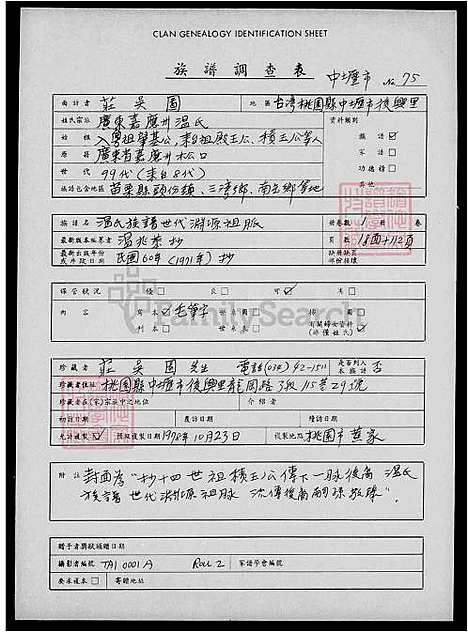 CLAN GENEALOGY IDENTIFICATION SHEET
族譜調查表 中壢市 No 75
面訪者 莊吳圓 地區 台灣桃園縣中壢市後興里
姓氏宗派 廣東嘉應州溫氏 資料類別
始祖 入粵祖肇基公, 來台祖殿玉公、積玉公等人 族譜 ☑
原籍 廣東省嘉應州松口 家譜 □
世代 99代 (來台8代) 功德榜 □
族譜包含地區 苗栗縣頭份鎮、三灣鄉、南庄鄉等地 其他
族譜名 溫氏族譜世代淵源祖脈 冊卷數 1 冊 卷
最新版本編著者 溫兆 抄 頁數 18面+112頁
最新出版年份或手抄日期 民國60年 (1971年) 抄 缺冊缺頁部份補續
保管狀況 優 □ 良 □ 可 ☑ 劣 □
內容 寫本 ☑ 毛筆字 稿本 □
刊本 □ 有關婦女資料 (非僅姓氏) □
FamilySearch
珍藏者 莊吳圓 先生 電話(034) 42-1511 是否列入本族譜 否
珍藏者住址 桃園縣中壢市後興里龍岡路3段115巷29號
珍藏者在(家)宗族中之地位 介紹者
初訪日期 覆訪日期 續訪日期
允許複製 ☑ 預約複製日期 1978年10月23日 複製地點 桃園市黃家
附註 封面為"抄十四世祖積玉公傳下一脈後裔 溫氏
族譜世代淵源祖脈 流傳後裔
贈予者獎狀頒贈日期
攝影者編號 TAI 0001 A Roll 2 家譜學會編號
要求複本 □ 寄贈地址